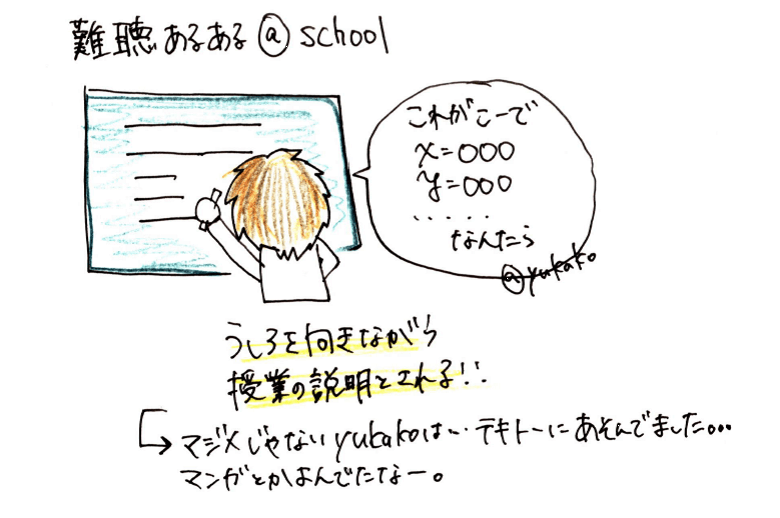 難聴あるある@school
これがこーで
x=000
y=000
.....
なんたら
@yukako
うしろを向きながら
授業の説明とされる!!
マジメじゃないyukakoは… テキトーにあそんでました...
マンガとかよんでたなー。